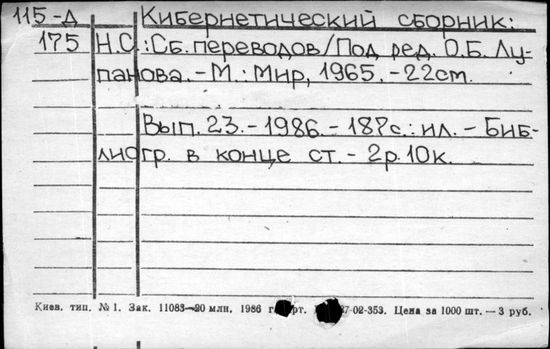 115-Д Кибернетический сборник:
175 Н.С.: Сб. переводов / Под ред. О.Б. Лу-
панова. - М.: Мир, 1965. - 22 см.
Вып. 23. - 1986. - 187 с.: ил. - Биб-
лиогр. в конце ст. - 2р. 10к.
Киев. тип. № 1. Зак. 11083—20 млн. 1986 7-02-353. Цена за 1000 шт. — 3 руб.